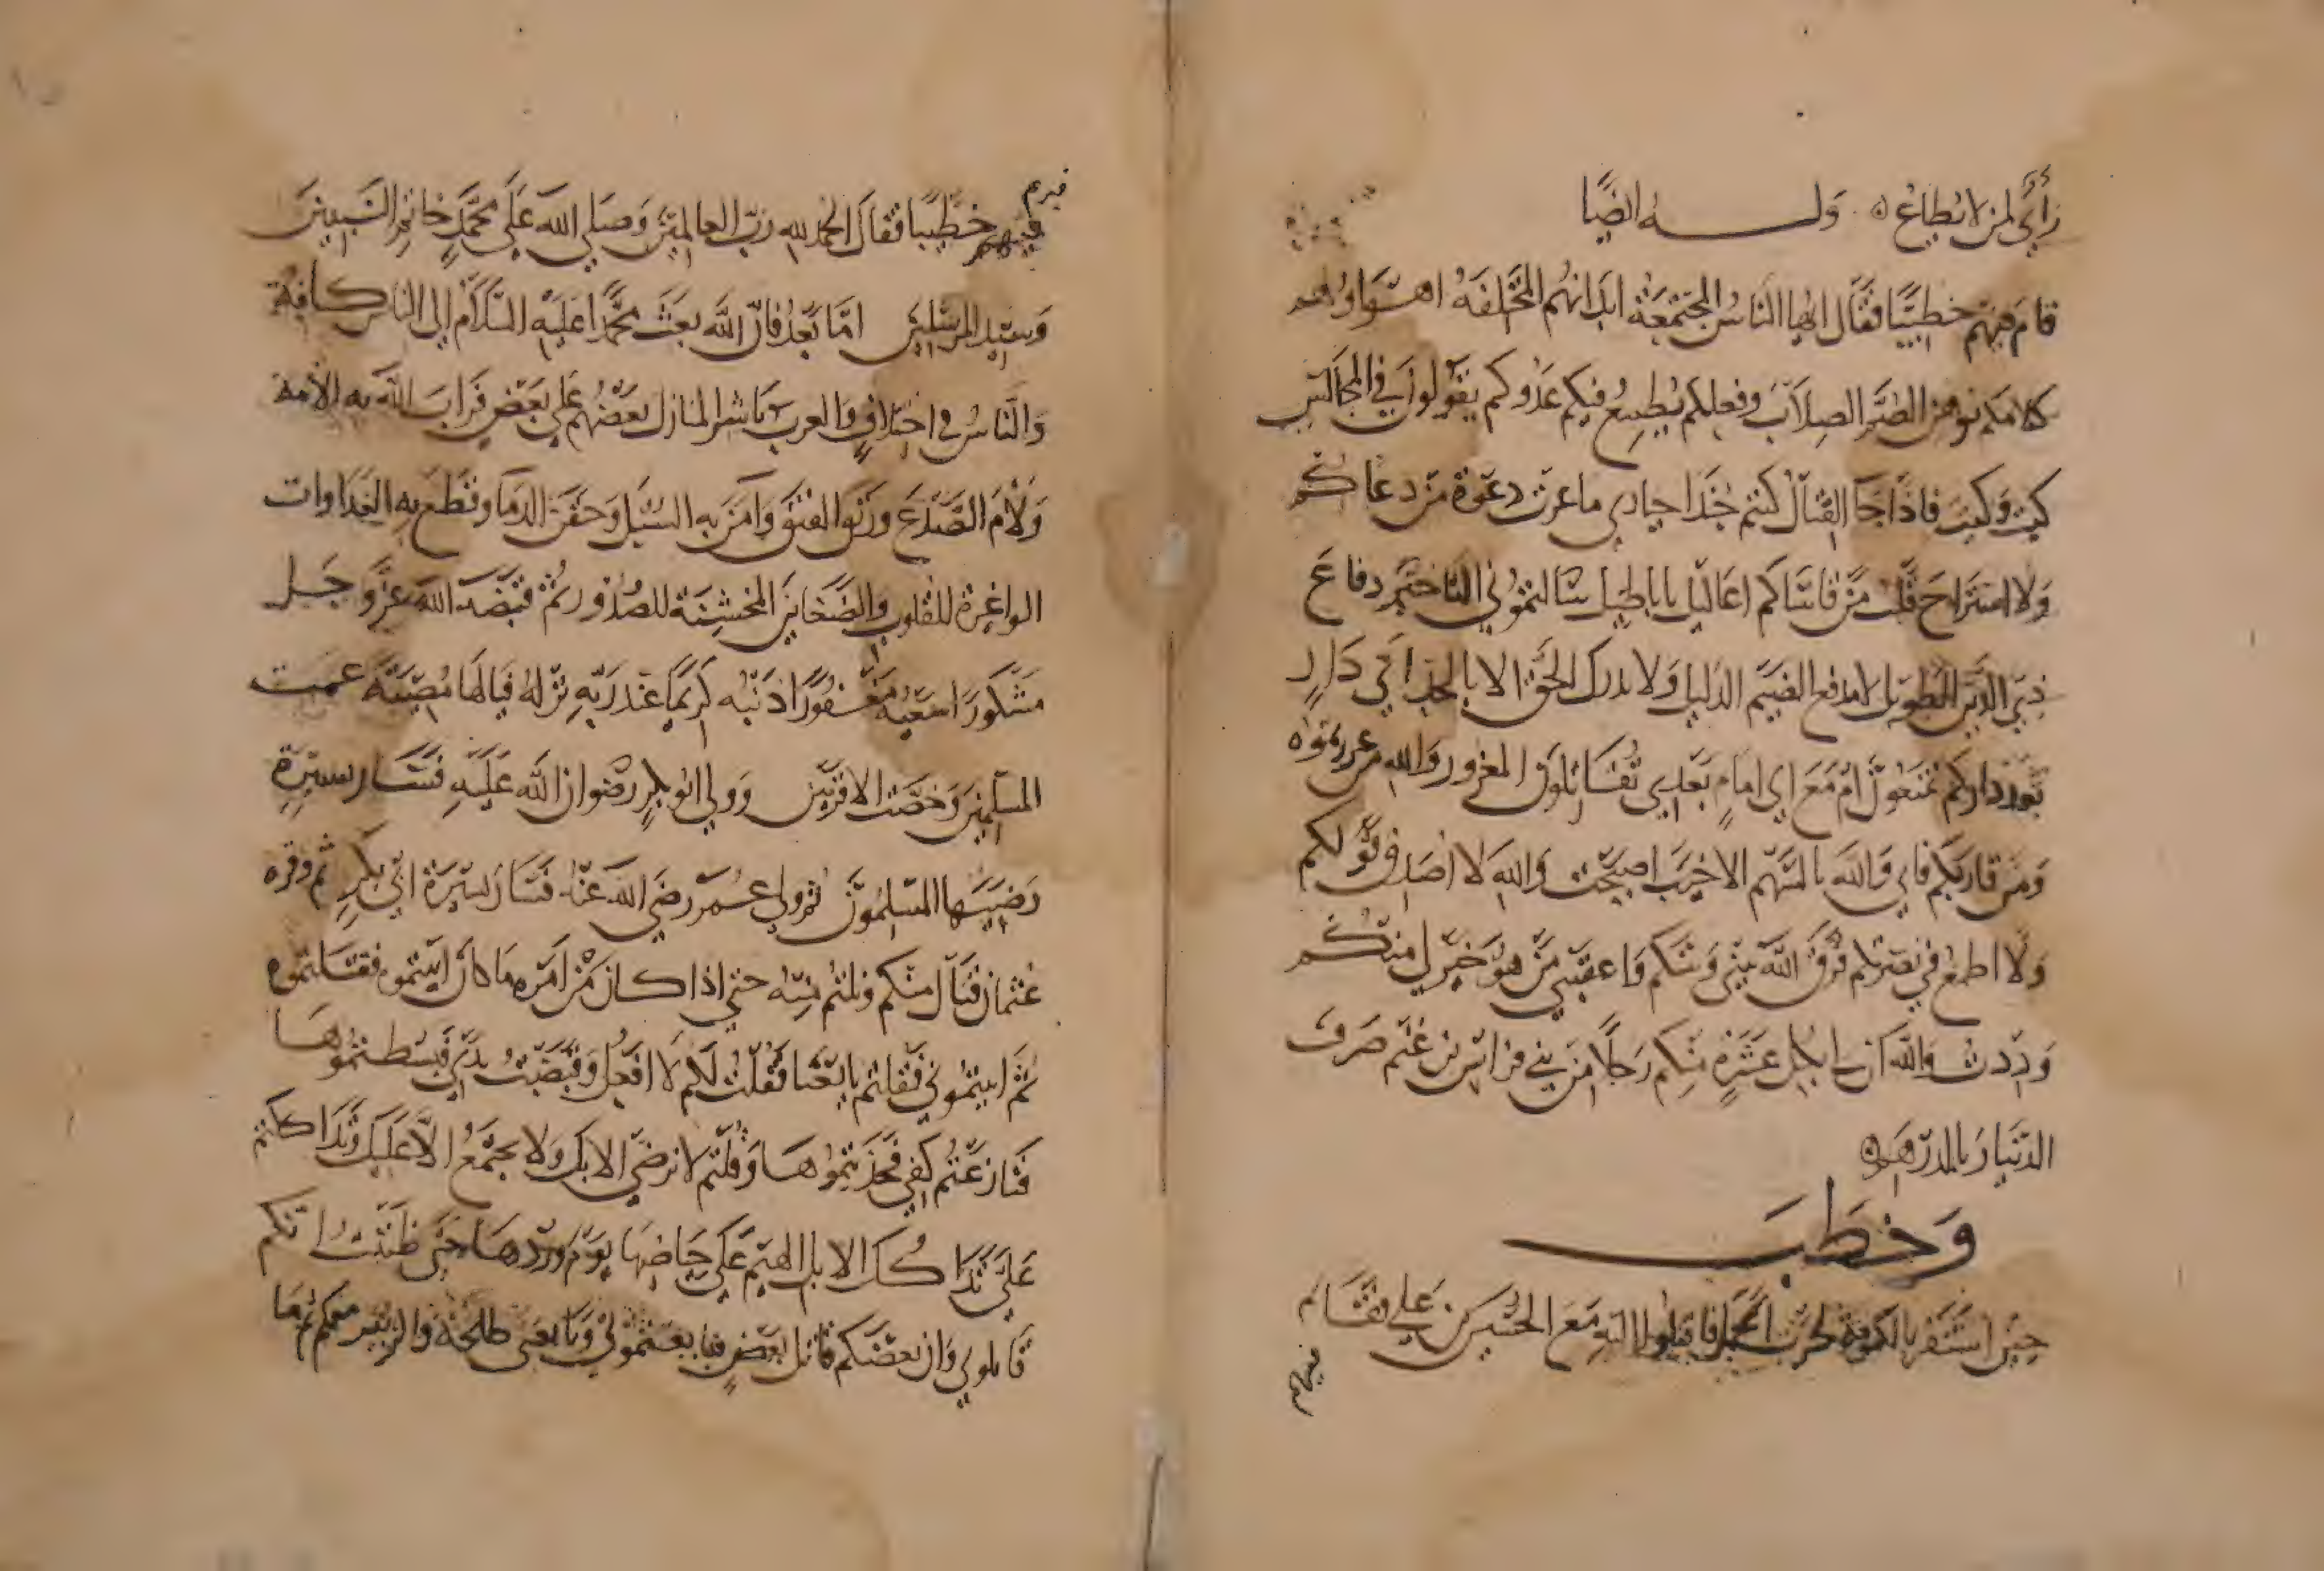 رَأْيَ لمن لا يُطاع ۞ وَلــــه ايضًا
قامَ فيهم خطيبًا فقال ايها النّاسُ المجتمعَة ابدانهُم المختلفَةُ اهــواؤهم
كلامكم يوهن الصّم الصِلابَ وفعلكم يُطمِعُ فيكم عَدُوكم يَقولون في المجالس
كيت وَكيت فاذا جَا القتال كنتم حِيدا حيادي ما عزت دعوَة من دعاكم
وَلا استراحَ قلب من قاساكم اعاليل باباطيل سَالتموني التاخير دفاع
ذي الدَّين المطويل لا يدفع الضيم الذليل وَلا يدرك الحق الا بالجد اي دَارٍ
بَعد داركم تمنعون أم مَعَ اي امامٍ بعدي تُقاتِلون المغرور وَالله من غررتموه
وَمَن فازبكم فاز وَالله بالسَهم الاخيَب اصبحت وَاللهِ لا اصَدق قَولكم
وَلا اطمع في نصرتكم فرّقَ الله بيني وَبينكم وَاعقبني من هو خير لي منكم
وَدِدت وَالله ان لي بكل عَشَرةٍ منكم رَجلًا من بني فراس بن غنم صَرفَ
الدّينار بالدرهم ۞
وَخطَب
حين استنفر بالكوفة لحرب الجمل فاقبلوا اليه مَعَ الحسن بن علي فقَام
فيهم
فيهم خطيبًا فقال الحمد لله ربّ العالمين وَصلي الله عَلَى محمّدٍ خاتم النبيين
وَسيّد المرسلين امّا بَعدُ فان الله بعَث محمّدا عليه السَّلام إلى الناس كافة
وَالنّاسُ في اختلافٍ وَالعرب بشر المنازل بعضهُم علي بعَضٍ فرابَ الله به الامة
وَلأمَ الصَّدعَ ورتق الفتق وَامنَ به السُّبل وَحقن الدمَا وَقطع به العَدَاوات
الواغرة للقلوب والضَغاين المخشِنَة للصُدُور ثم قبضَه الله عزّ وَجَل
مَشكورًا سَعيه مغفورًا ذَنبُه كريمًا عند ربّهِ نزلهُ فيَالها مُصيبَة عمت
المسلمين وَخصّت الاقربين وَولي ابو بكرٍ رضوان الله عَلَيهِ فسَار بسيرةٍ
رَضيَها المسلمُون ثم ولي عُمر رضي الله عنهُ فسَار سيرَة ابي بكرٍ ثم وليه
عُثمان فنال منكم ونلتم منه حتي اذا كان من امره ما كان اتيتموه فقتلتموه
ثمّ اتيتموني فقلتم بايعنَا فقلت لكم لا افعل وَقبضت يدَيَّ فبسَطتموها
فنازعتم كفي فجذبتموها وَقلتم لا نرضَي الا بك وَلا نجتمع الا عَليك وَتداككتم
عَلَيَّ تداكك الابل الهيم عَلى حيَاضها يومَ وردهَا حتى ظننتُ انكم
قاتلوني وَان بعضَكم قاتل بَعضٍ فبايعتموني وَبايعَني طلحة وَالزبير معكم ثم مَا